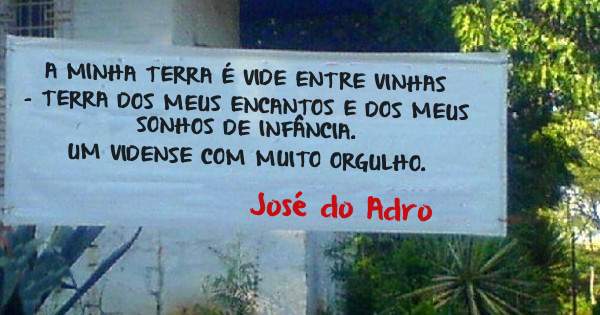 A MINHA TERRA É VIDE ENTRE VINHAS
- TERRA DOS MEUS ENCANTOS E DOS MEUS
SONHOS DE INFÂNCIA.
UM VIDENSE COM MUITO ORGULHO.
José do Adro